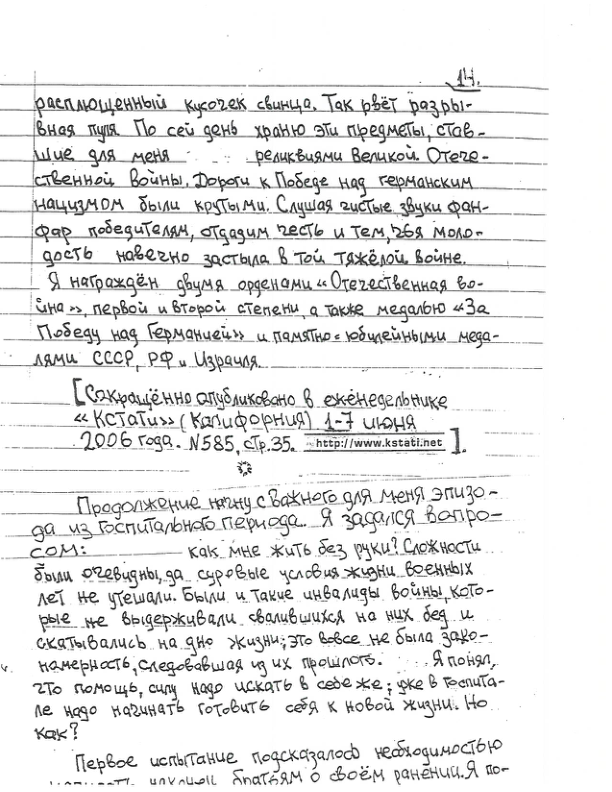 14.
расплющенный кусочек свинца. Так рвёт разры-
вная пуля. По сей день храню эти предметы, став-
шие для меня реликвиями Великой Отече-
ственной войны. Дороги к Победе над германским
нацизмом были крутыми. Слушая чистые звуки фан-
фар победителям, отдадим честь и тем, чья моло-
дость навечно застыла в той тяжёлой войне.
Я награждён двумя орденами «Отечественная во-
йна», первой и второй степени, а также медалью «За
Победу над Германией» и памятно-юбилейными меда-
лями СССР, РФ и Израиля.
[Сокращённо опубликовано в еженедельнике
«Кстати» (Калифорния) 1-7 июня
2006 года. N585, стр.35. http://www.kstati.net ].
Продолжение начну с важного для меня эпизо-
да из госпитального периода. Я задался вопро-
сом: как мне жить без руки? Сложности
были очевидны, да суровые условия жизни военных
лет не утешали. Были и такие инвалиды войны, кото-
рые не выдерживали свалившихся на них бед и
скатывались на дно жизни; это вовсе не была зако-
номерность, следовавшая из их прошлого. Я понял,
что помощь, силу надо искать в себе же; уже в госпита-
ле надо начинать готовить себя к новой жизни. Но
как?
Первое испытание подсказалось необходимостью
братьям о своём ранении. Я по-